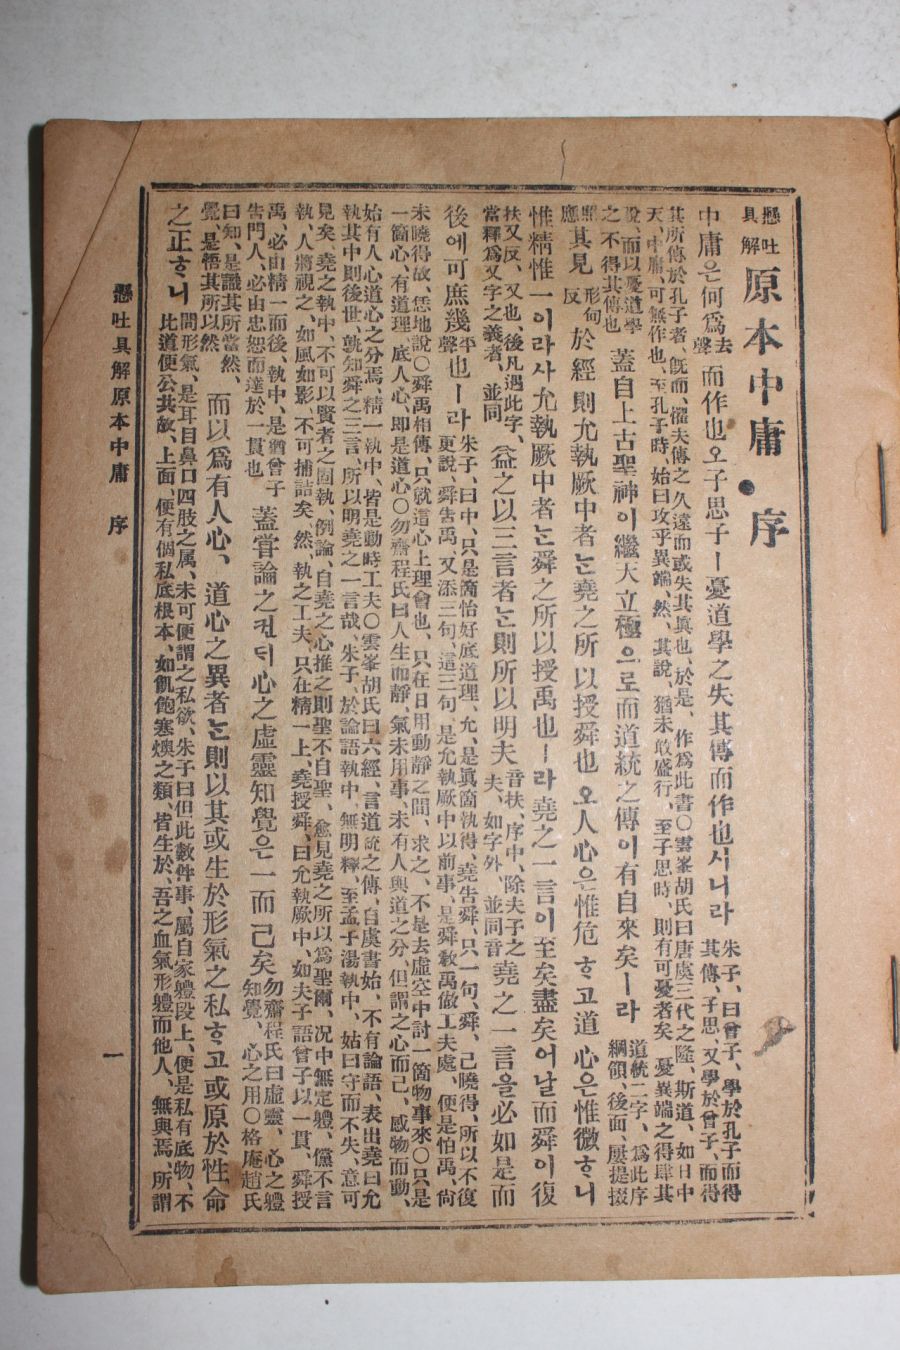 懸吐具解 原本中庸●序
中庸은何爲去聲而作也오子思子ㅣ憂道學之失其傳而作也시니라
朱子、曰曾子、學於孔子而得
其傳、子思、又學於曾子、而得
其所傳於孔子者、旣而、懼夫傳之久遠而或失其眞也、於是、作爲此書○雲峯胡氏曰唐虞三代之隆、斯道、如日中
天、中庸、可無作也、至孔子時、始曰攻乎異端、然、其說、猶未敢盛行、至子思時、則有可憂者矣 憂異端之得肆其
說、而以憂道學
之不得其傳也
蓋自上古聖神이繼天立極으로而道統之傳이有自來矣ㅣ라
道統二字、爲此序
綱領、後面、屢提掇
照應
其見形甸反於經則允執厥中者는堯之所以授舜也오人心은惟危ᄒᆞ고道心은惟微ᄒᆞ니
惟精惟一이라사允執厥中者는舜之所以授禹也ㅣ라堯之一言이至矣盡矣어날而舜이復
扶又反、又也、後凡遇此字、
當釋爲又字之義者、並同
益之以三言者는則所以明夫
音扶、序中、除夫子之
夫、如字外、並同音
堯之一言을必如是而
後에可庶幾平聲也ㅣ라
朱子、曰中、只是箇恰好底道理、允、是眞箇執得、堯告舜、只一句、舜、已曉得、所以不復
更說、舜告禹、又添三句、這三句、是允執厥中以前事、是舜敎禹做工夫處、便是怕禹、尙
未曉得故、恁地說○舜禹相傳、只就這心上理會也、只在日用動靜之間、求之、不是去虛空中討一箇物事來○只是
一箇心、有道理 底人心、即是道心○勿齋程氏曰人生而靜、氣未用事、未有人與道之分、但謂之心而已、感物而動、
始有人心道心之分焉、精一執中、皆是動時工夫○雲峯胡氏曰六經、言道統之傳、自虞書始、不有論語、表出堯曰允
執其中則後世、孰知舜之三言、所以明堯之一言哉、朱子、於論語執中、無明釋、至孟子湯執中、始曰守而不失、意可
見矣、堯之執中、不可以賢者之固執、例論、自堯之心推之則聖不自聖、愈見堯之所以爲聖爾、况中無定軆、儻不言
執、人將視之、如風如影、不可捕詰矣、然、執之工夫、只在精一上、堯授舜、曰允執厥中、如夫子語曾子以一貫、舜授
禹、必由精一而後、執中、是猶曾子
告門人、必由忠恕而達於一貫也
蓋嘗論之컨ᄃᆡ心之虛靈知覺은一而已矣
勿齋程氏曰虛靈、心之軆
知覺、心之用○格庵趙氏
曰知、是識其所當然、
覺、是悟其所以然
而以爲有人心、道心之異者는則以其或生於形氣之私ᄒᆞ고或原於性命
之正ᄒᆞ니
間形氣、是耳目鼻口四肢之属、未可便謂之私欲、朱子曰但此數件事、屬自家軆段上、便是私有底物、不
比道便公共故、上面、便有個私底根本、如飢飽寒燠之類、皆生於、吾之血氣形軆而他人、無與焉、所謂
懸吐具解原本中庸 序 一